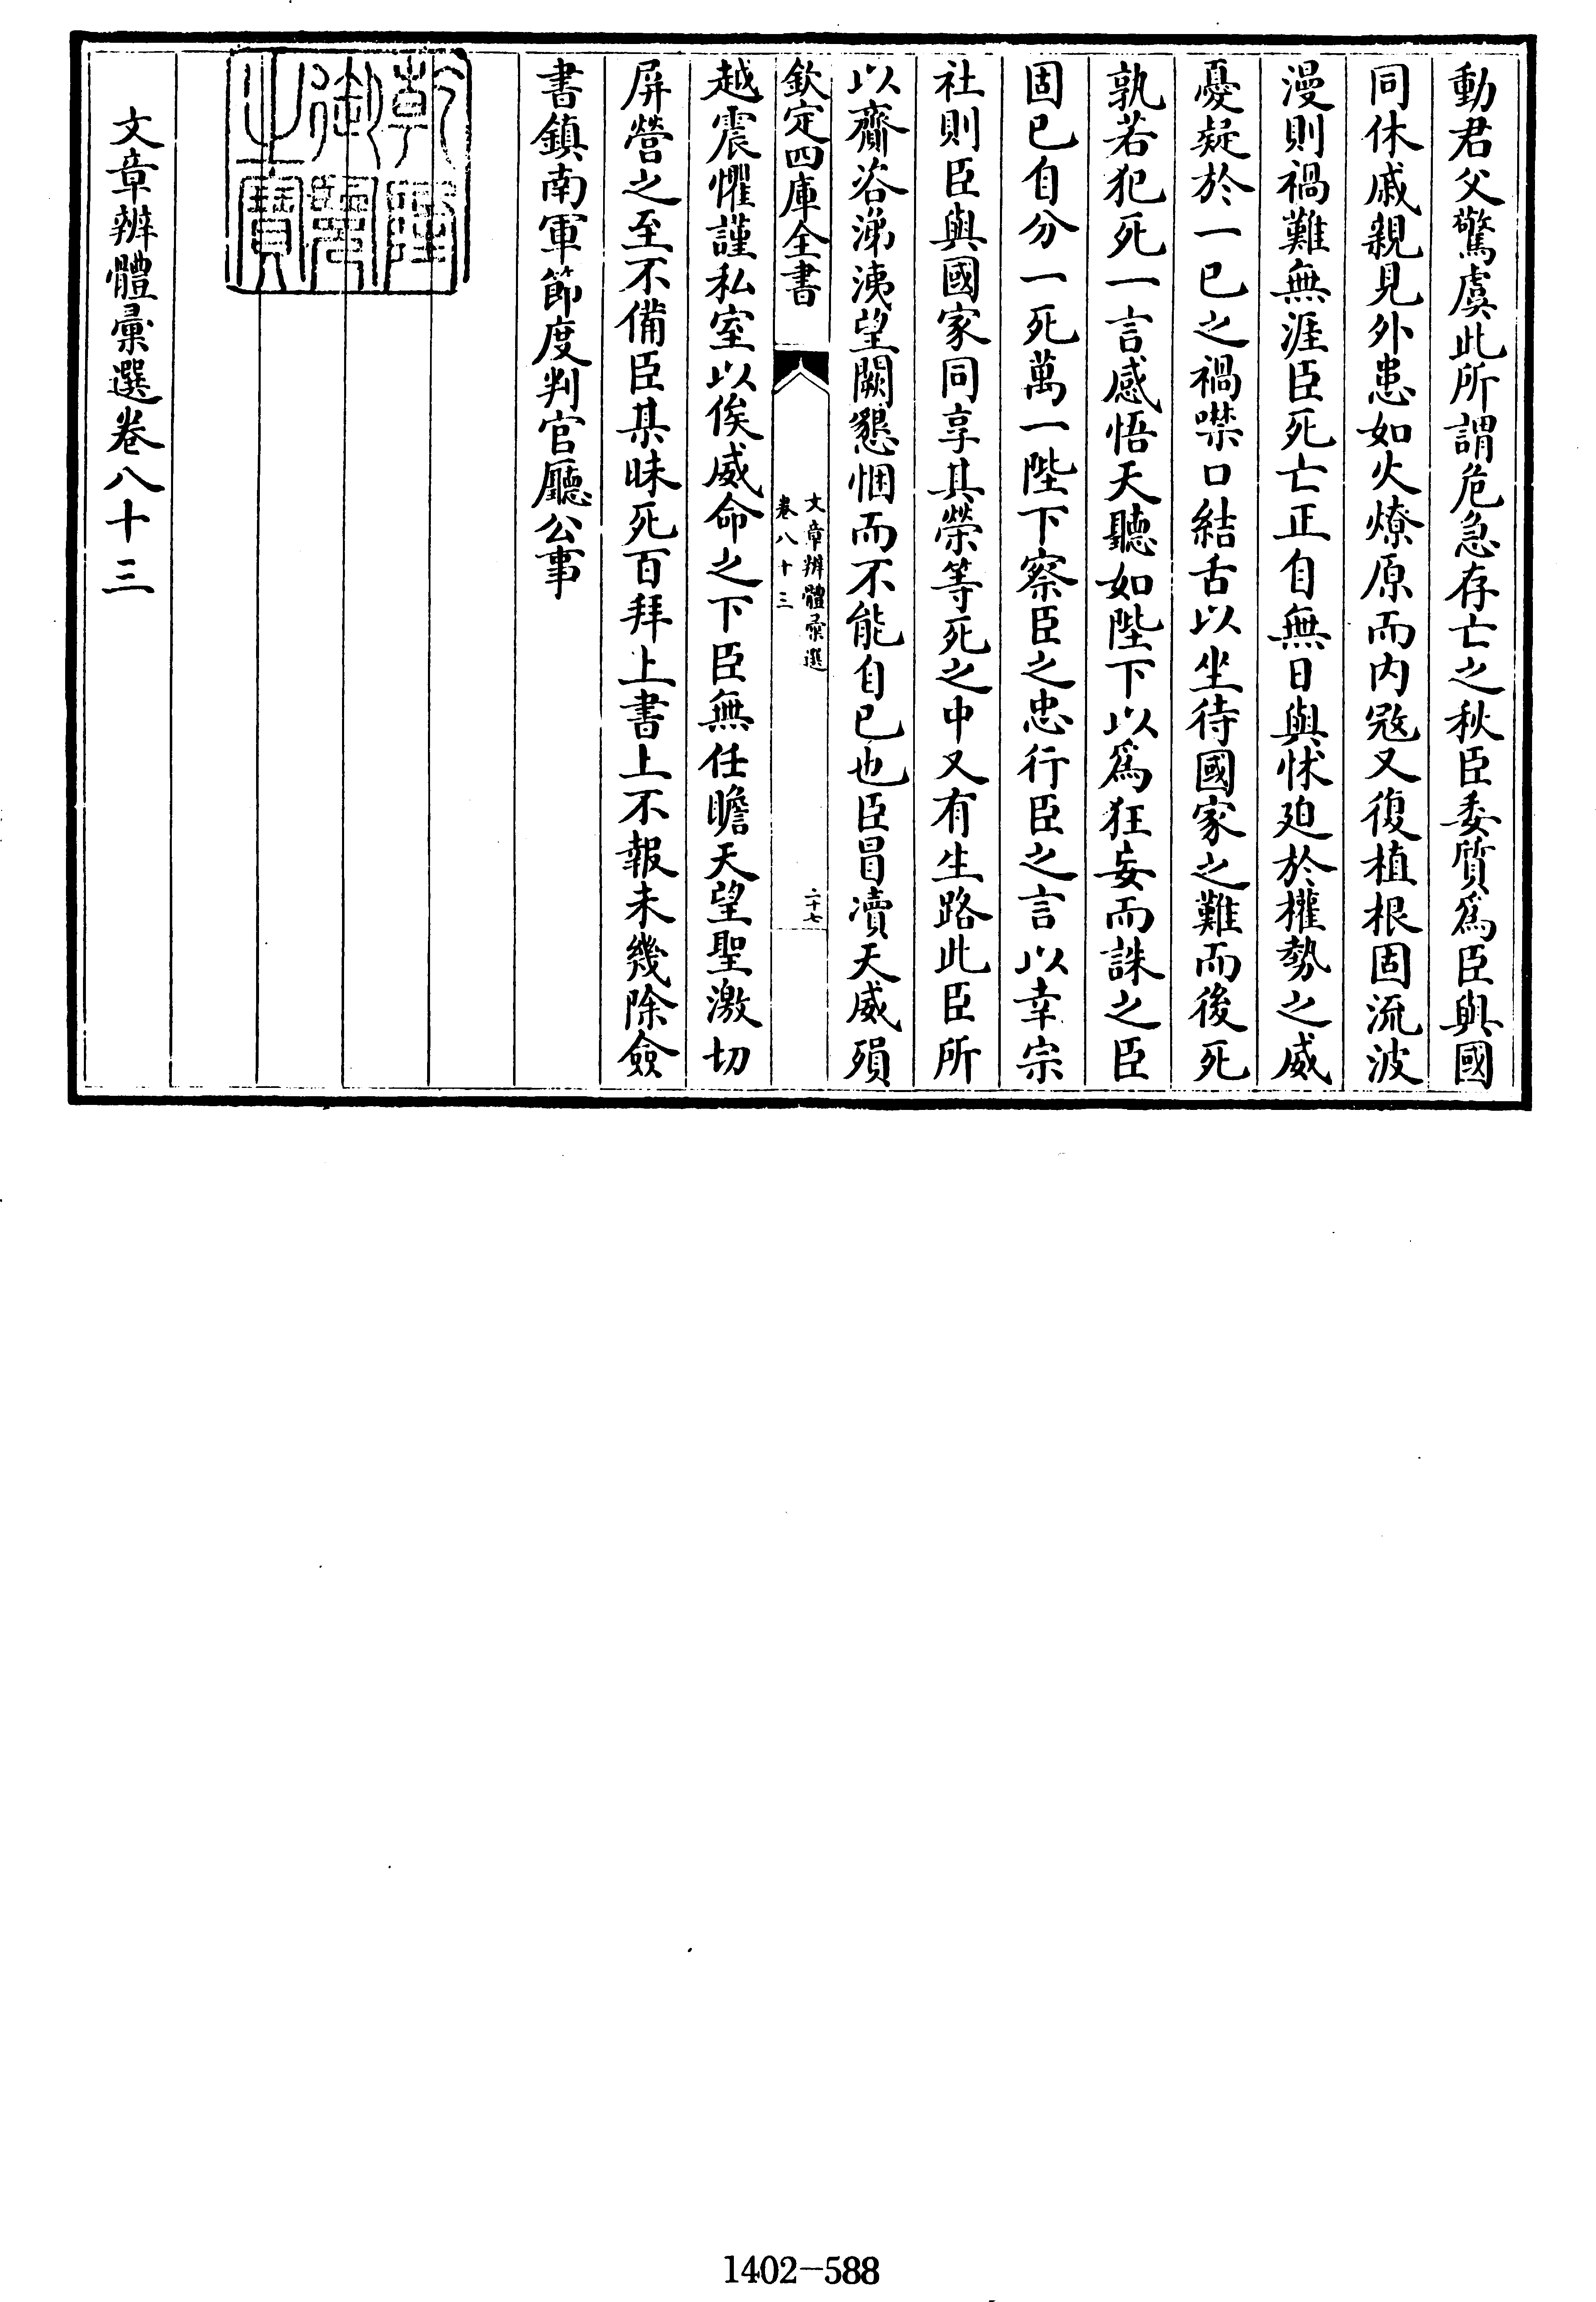 動君父驚虞此所謂危急存亡之秋臣委質爲臣與國
同休戚親見外患如火燎原而内冦又復植根固流波
漫則禍難無涯臣死亡正自無日與怵廹於權勢之威
憂疑於一已之禍噤口結舌以坐待國家之難而後死
孰若犯死一言感悟天聽如陛下以爲狂妄而誅之臣
固已自分一死萬一陛下察臣之忠行臣之言以幸宗
社則臣與國家同享其榮等死之中又有生路此臣所
以齎咨涕洟望闕懇悃而不能自已也臣冒瀆天威殞
欽定四庫全書
文章辨體彙選
卷八十三
二十七
越震懼謹私室以俟威命之下臣無任瞻天望聖激切
屏營之至不備臣某昧死百拜上書上不報未幾除僉
書鎮南軍節度判官廳公事
乾隆
御覽
之寶
文章辨體彙選卷八十三
1402-588